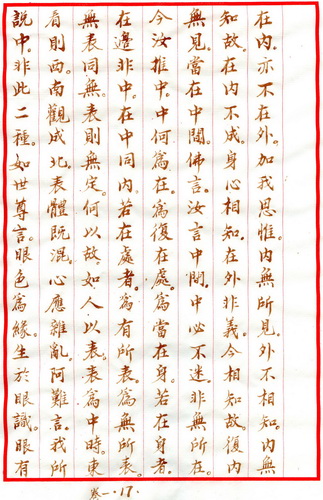 在內。亦不在外。如我思惟。內無所見。外不相知。內無
知故。在內不成。身心相知。在外非義。今相知故。復內
無見。當在中間。佛言。汝言中間。中必不迷。非無所在。
今汝推中。中何爲在。爲復在處。爲當在身。若在身者。
在邊非中。在中同內。若在處者。爲有所表。爲無所表。
無表同無。表則無定。何以故。如人以表。表爲中時。東
看則西。南觀成北。表體既混。心應雜亂。阿難言。我所
說中。非此二種。如世尊言。眼色爲緣。生於眼識。眼有
卷一.17.